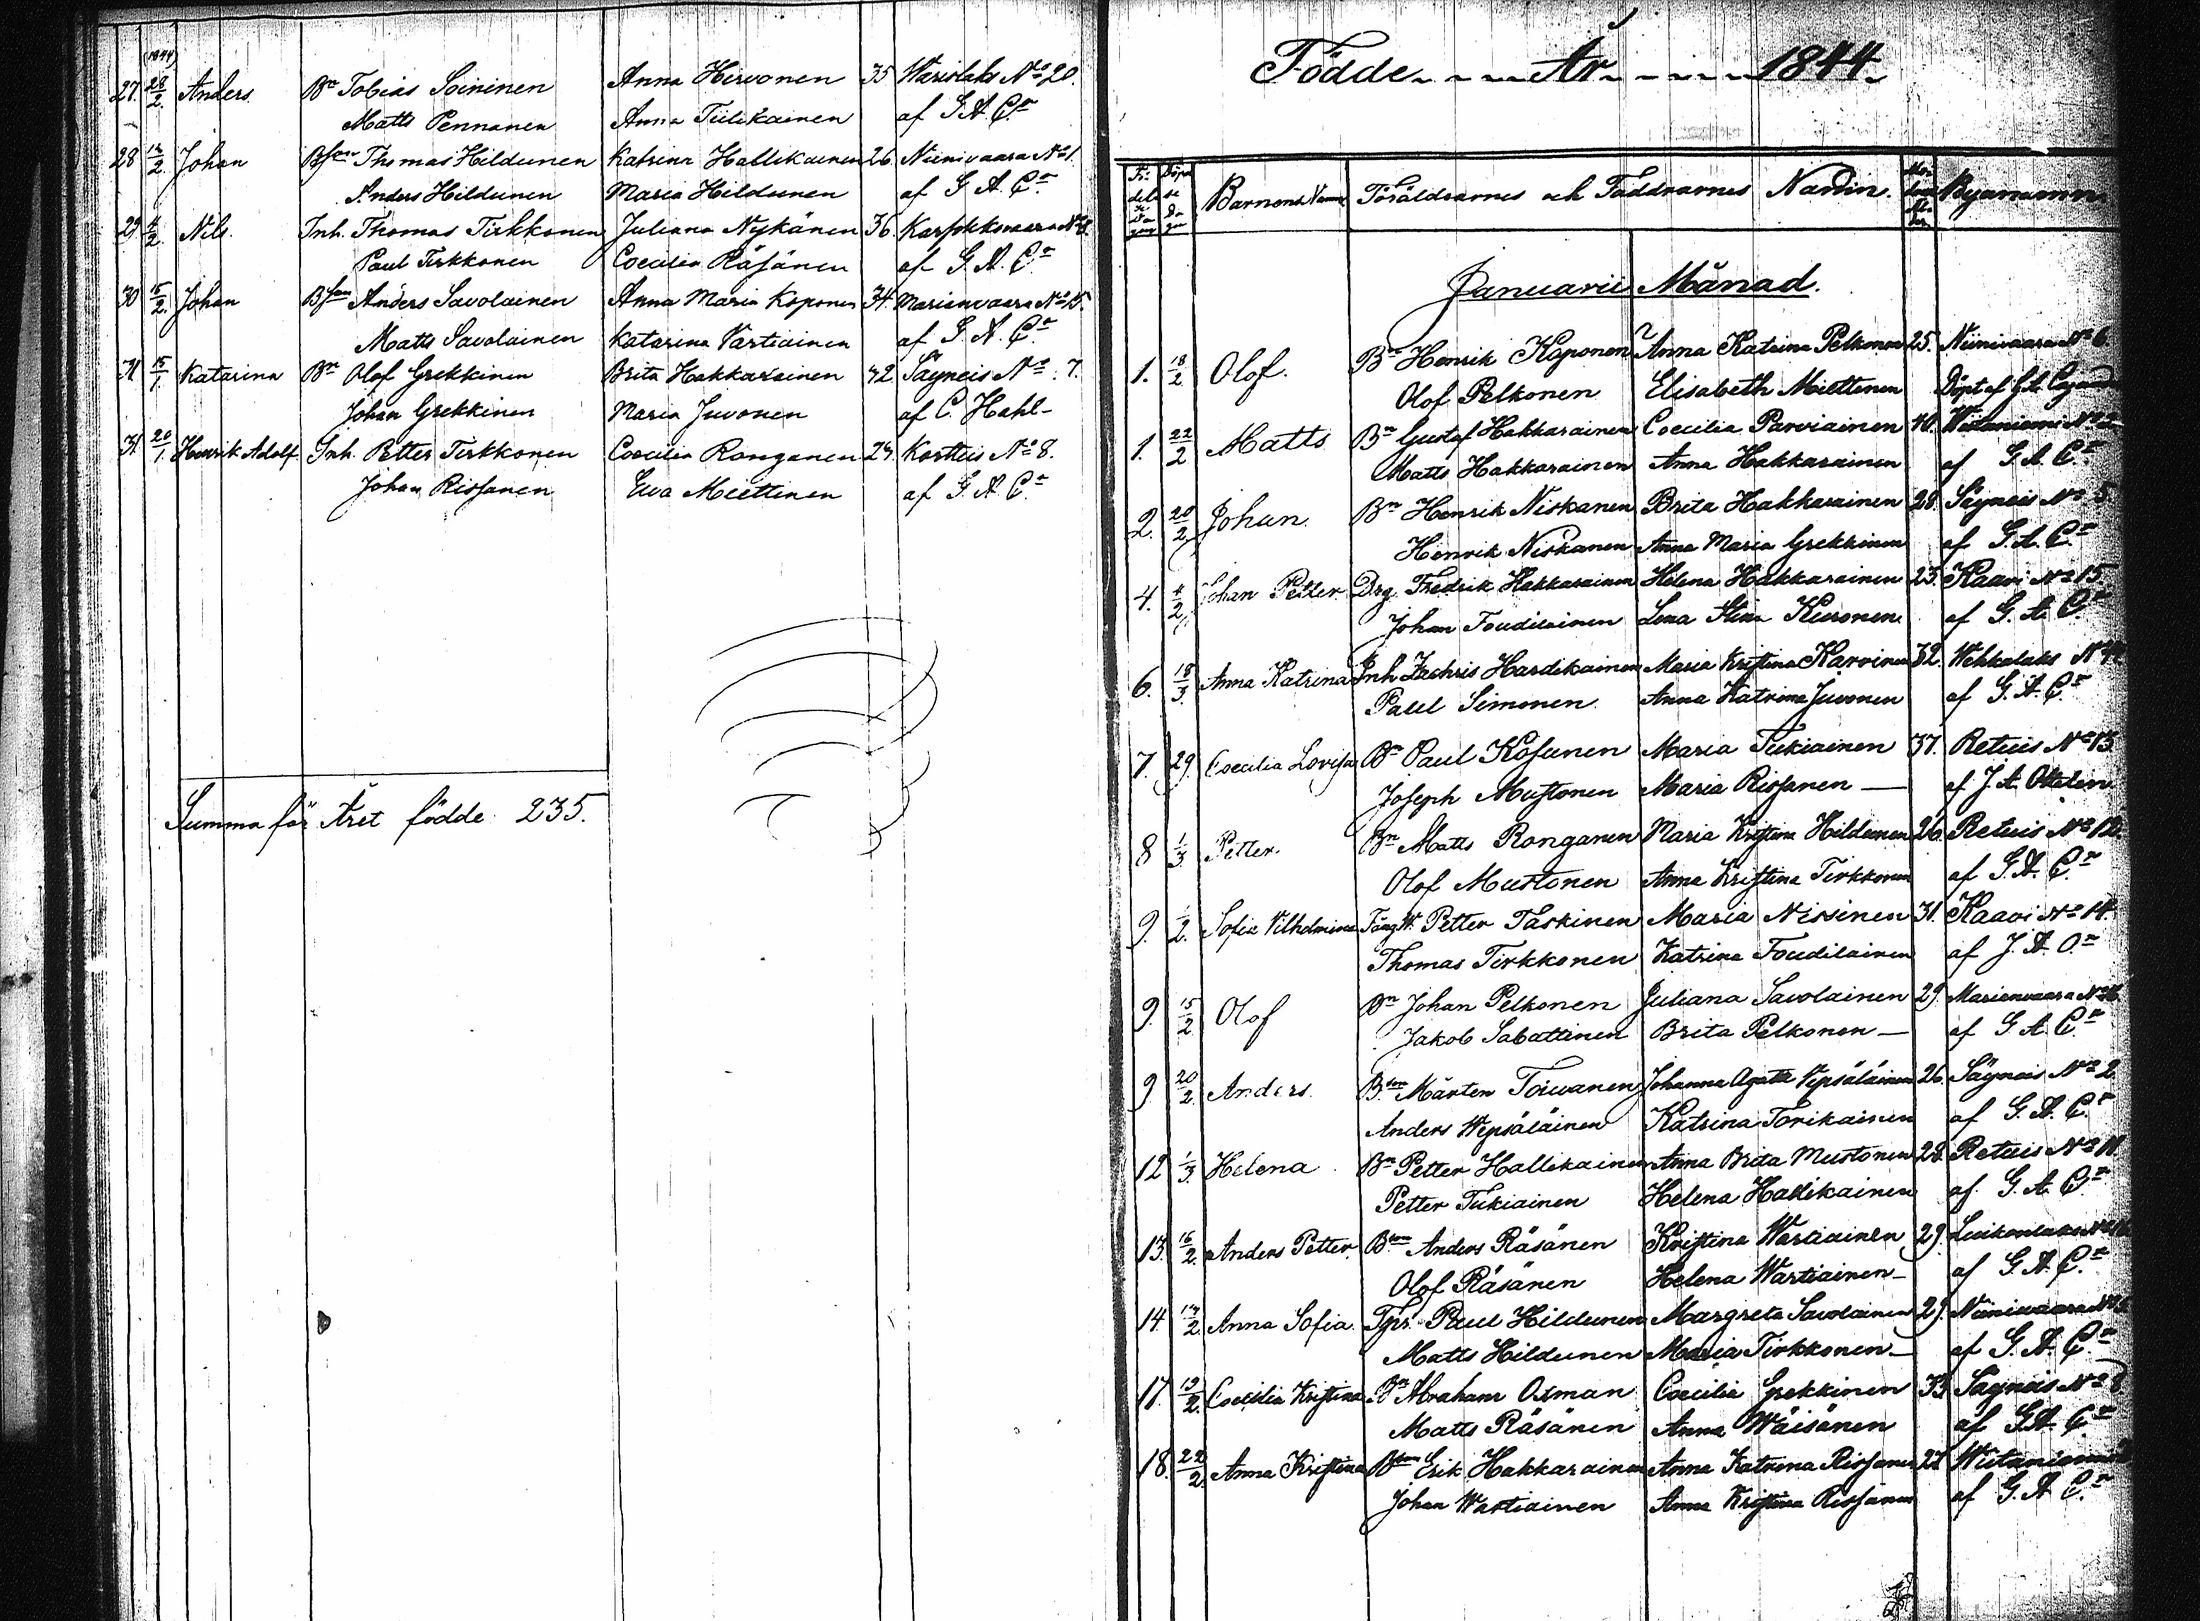 (1844)
27. 28/2. Anders. Bn Tobias Soininen Anna Hirvonen 35 Warislaks No 20.
Matts Pennanen Anna Tiilikainen af G A. Cn
28 12/2. Johan Bson Thomas Hildunen Katrina Hallikainen 26. Niinivaara No 1.
Anders Hildunen Maria Hildunen af G. A. Cn
29 4/2. Nils. Inh. Thomas Tirkkonen Juliana Nykänen 36. No 8.
Paul Tirkkonen Coecilia Räsänen af G. A. Cn
30 15/2. Johan Bson Anders Savolainen Anna Maria Koponen 34. Marianvaara No 15.
Matts Savolainen Katarina Vartiainen af G. A. Cn
31 15/1. Katarina Bn Olof Grekkinen Brita Hakkarainen 42. Säyneis No 7.
Johan Grekkinen Maria Juvonen af C. Hahl-
31. 20/1. Henrik Adolf. Inh. Petter Tirkkonen Coecilia Ronganen 24. Korttis No 8.
Johan Rissanen Ewa Miettinen af G. A. Cn
Summa för Året födde 235.
Födde År 1844.
Barnens Namn Föräldrarnes och Faddrarnes Namn. Byanamn
Januarii Månad.
1. 18/2 Olof. Bn Henrik Koponen Anna Katrina Pelkonen 25. Niinivaara No 6.
Olof Pelkonen Elisabeth Miettinen Döpt af G. A.
1. 22/2 Matts Bn Gustaf Hakkarainen Coecilia Parviainen 40. Wiitaniemi No 2
Matts Hakkarainen Anna Hakkarainen af G. A. Cn
2. 20/2. Johan. Bn Henrik Niskanen Brita Hakkarainen 28. Säyneis No 5
Henrik Niskanen Anna Maria Grekkinen af G. A. Cn
4. 4/2. Johan Petter. Drg. Fredrik Hakkarainen Helena Hakkarainen 23. Kaavi No 15.
Johan Toudilainen Lena Stina Keronen. af G. A. Cn
6. 18/3. Anna Katrina Inh Zachris Hardikainen Maria Kristina Karvinen 32. Wehkalaks No
Paul Simonen. Anna Katrina Juvonen af G. A. Cn
7. 29. Coecilia Lovisa Bn Paul Kosunen Maria Tukiainen 37. Retuis No 13.
Joseph Mustonen Maria Rissanen — af J. A.
8 1/3. Petter. Bn Matts Ronganen Maria Kristina Hildunen 26. Retuis No 12.
Olof Mustonen Anna Kristina Tirkkonen af G. A. Cn
9. 1/2. Sofia Vilhelmina Petter Taskinen Maria Nissinen 31. Kaavi No 14.
Thomas Tirkkonen Katrina Toudilainen af J. A. On
9. 15/2 Olof Bn Johan Pelkonen Juliana Savolainen 29. Marianvaara No 16
Jakob Sabattinen Brita Pelkonen — af G. A. Cn
9 20/2. Anders. Bson Mårten Toiwanen Johanna Agata Vepsäläinen 26. Säyneis No 2.
Anders Wepsäläinen Katrina Torikainen af G. A. Cn
12 1/3. Helena Bn Petter Hallikainen Anna Brita Mustonen 28. Retuis No 11
Petter Tukiainen Helena Hallikainen af G. A. Cn
13. 16/2. Anders Petter. Bson Anders Räsänen Kristina Wartiainen 29. No
Olof Räsänen Helena Wartiainen — af G. A. Cn
14 17/2. Anna Sofia. Tpr. Paul Hildunen Margreta Savolainen 29. Niinivaara No
Matts Hildunen Maria Tirkkonen — af G. A. Cn
17. 19/2. Coecilia Kristina Bn Abraham Oxman Coecilia Grekkinen 33 Säyneis No 8
Matts Räsänen Anna Wäisänen af G. A. Cn
18. 22/2. Anna Kristina Bson Erik Hakkarainen Anna Katrina Rissanen 27. Wiitaniemi
Johan Wartiainen Anna Kristina Rissanen af G. A. Cn